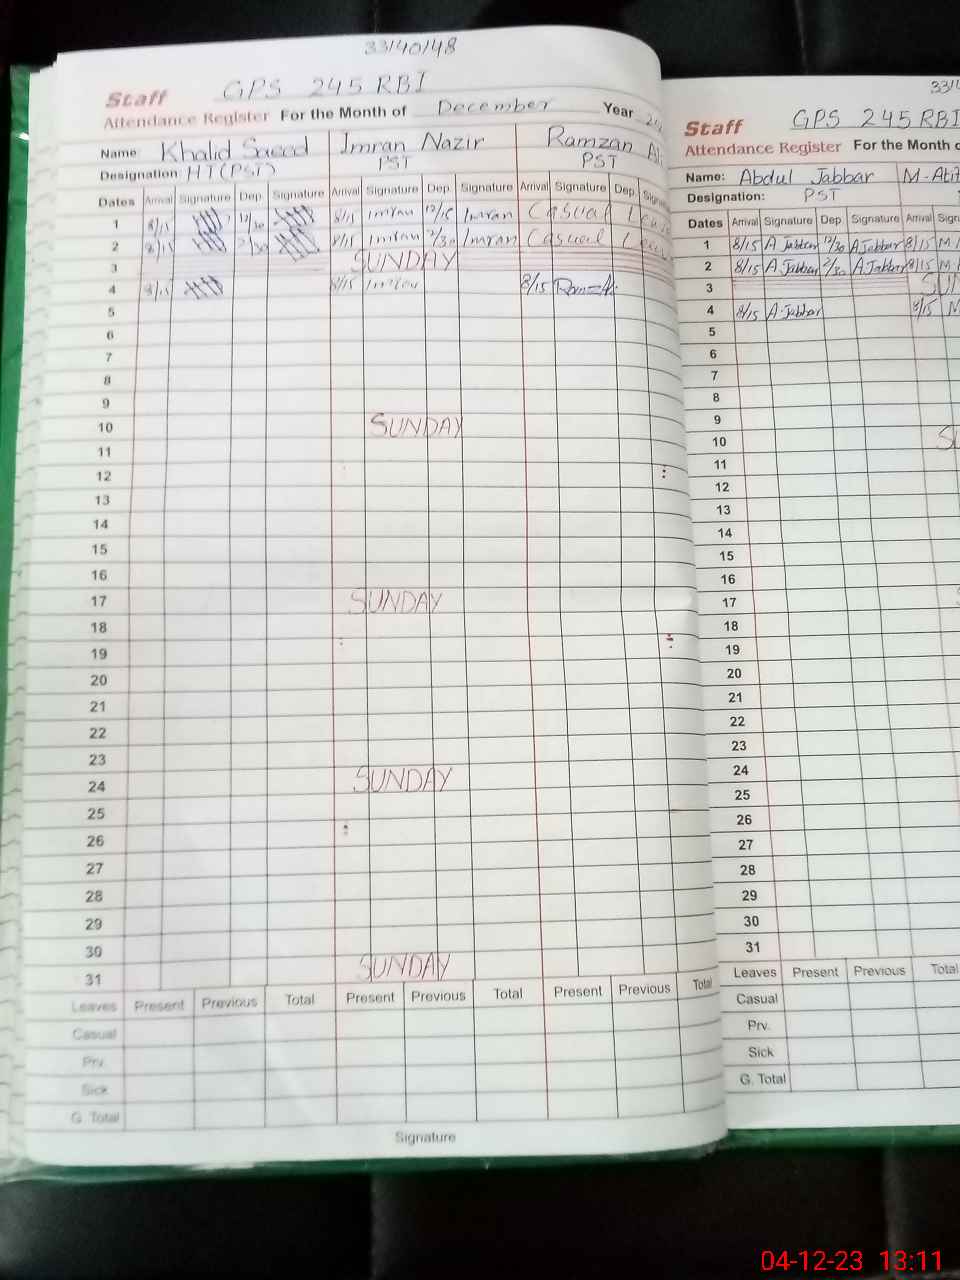 33140148
GPS 245 RBI
Staff
Attendance Register For the Month of December Year
Name: Khalid Saeed Imran Nazir Ramzan Ali
Designation HT(PST) PST PST
Dates Arrival Signature Dep. Signature Arrival Signature Dep. Signature Arrival Signature Dep. Signature
1 8/15 12/30 8/15 Imran Imran Casual Leave
2 8/15 12/30 8/15 Imran 12/30 Imran Casual Leave
3 SUNDAY
4 8/15 8/15 Imran 8/15
5
6
7
8
9
10 SUNDAY
11
12
13
14
15
16
17 SUNDAY
18
19
20
21
22
23
24 SUNDAY
25
26
27
28
29
30
31 SUNDAY
Leaves Present Previous Total Present Previous Total Present Previous Total
Casual
Prv.
Sick
G. Total
Signature
GPS 245 RBI
Staff
Attendance Register For the Month
Name: Abdul Jabbar
Designation: PST
Dates Arrival Signature Dep. Signature Arrival
1 8/15 A Jabbar 12/30 A Jabbar 8/15 M
2 8/15 A Jabbar 12/30 A Jabbar 8/15 M
3
4 8/15 A. Jabbar 8/15 M
5
6
7
8
9
10
11
12
13
14
15
16
17
18
19
20
21
22
23
24
25
26
27
28
29
30
31
Leaves Present Previous Total
Casual
Prv.
Sick
G. Total
04-12-23 13:11